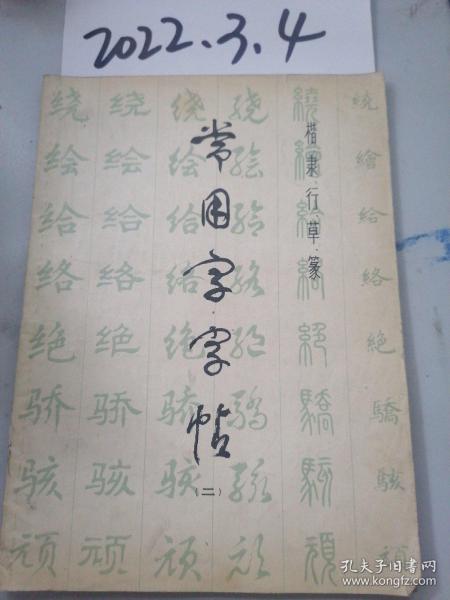 2022.3.4
常用字字帖
(二)
楷.隶.行.草.篆
绕 绕 绕 绕 繞 繞
绘 绘 绘 绘 繪 繪
给 给 给 给 給 給
络 络 络 络 絡 絡
绝 绝 绝 绝 絕 絕
骄 骄 骄 骄 驕 驕
骇 骇 骇 骇 駭 駭
顽 顽 顽 顽 頑 頑
孔夫子旧书网
www.kongfz.com